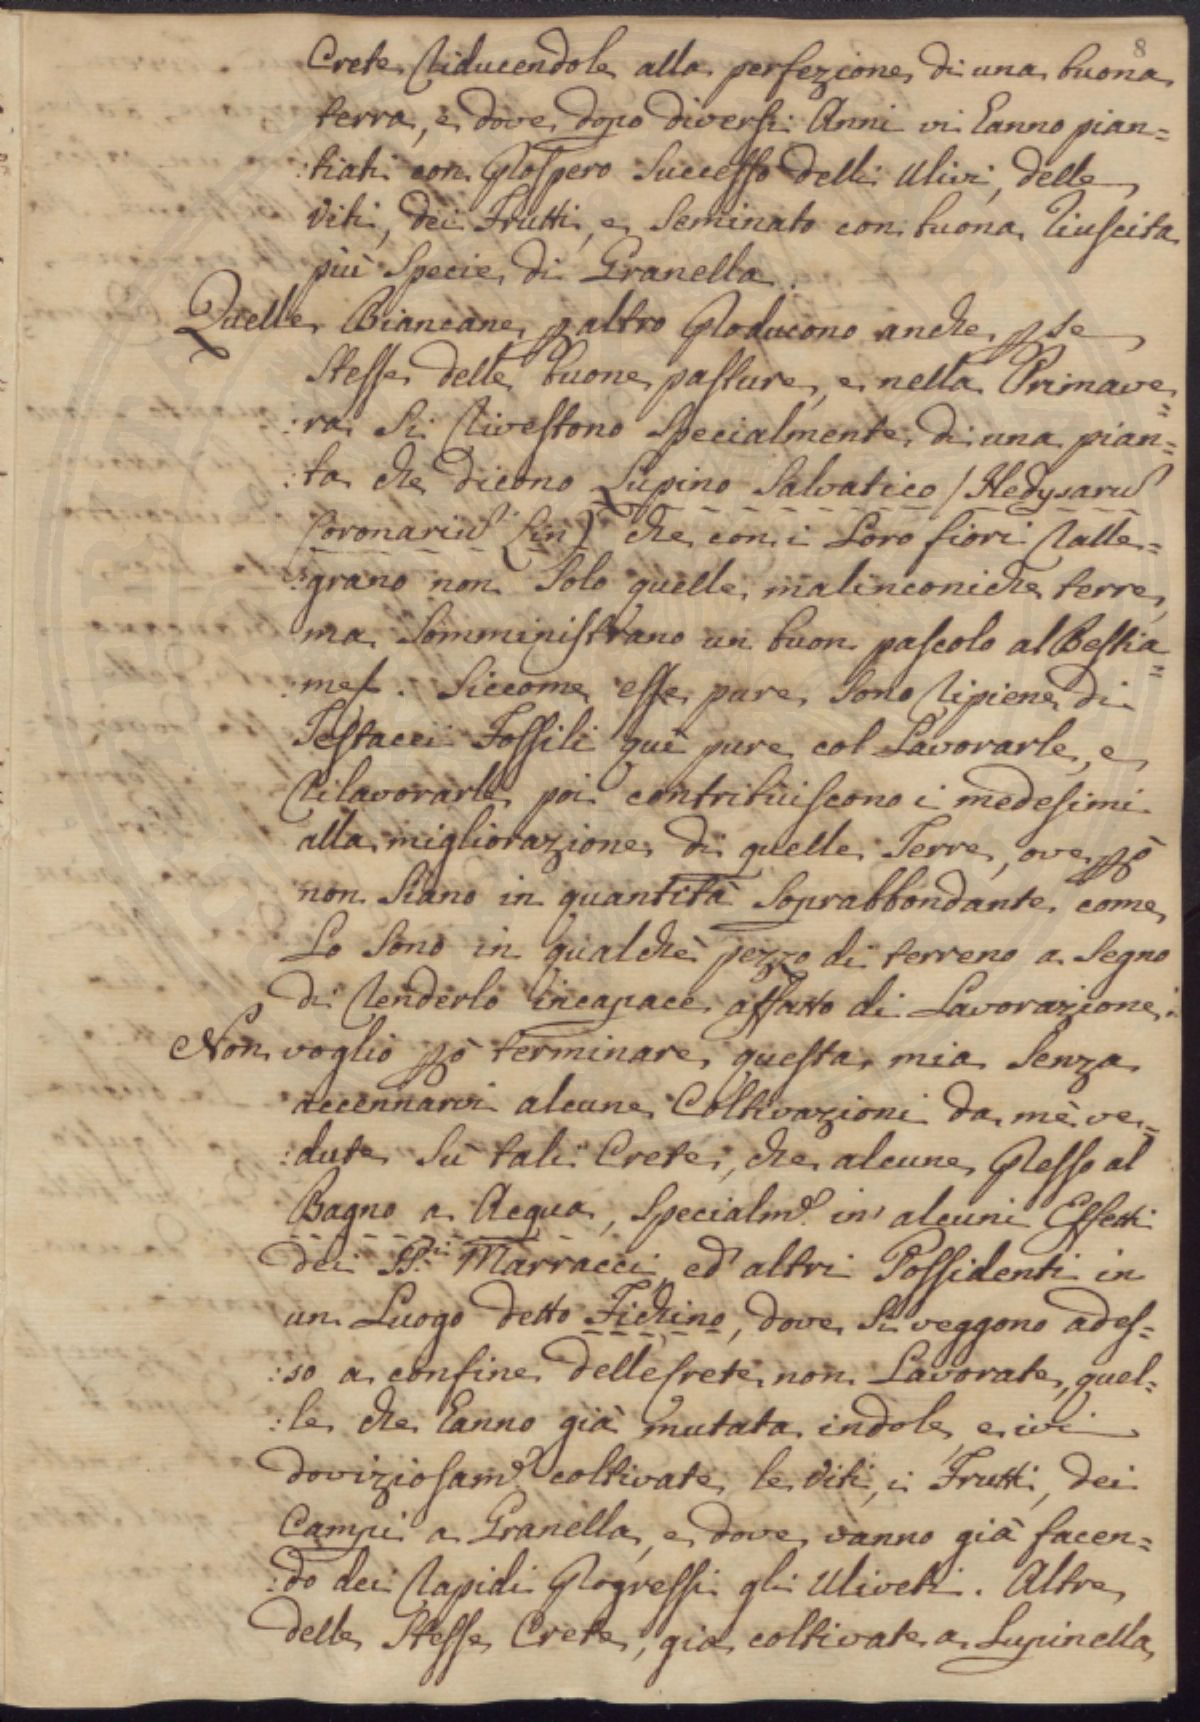 8
Crete riducendole alla perfezione di una buona
terra, e dove dopo diversi Anni vi hanno pian=
:tati con Prospero Successo delli Ulivi, delle
Viti, dei Frutti, e Seminato con buona riuscita
più Specie di Granella.
Quelle Biancane p altro Producono anche p se
Stesse delle buone pasture, e nella Primave=
:ra Si rivestono Specialmente di una pian=
:ta che dicono Lupino Salvatico / Hedysarū
Coronariū Lin) che con i Loro fiori ralle=
:grano non Solo quelle malinconiche terre,
ma Somministrano un buon pascolo al Bestia=
:me. Siccome esse pure Sono ripiene di
Testacei Fossili quì pure col Lavorarle, e
rilavorarle poi contribuiscono i medesimi
alla migliorazione di quelle Terre, ove pò
non Siano in quantità Soprabbondante come
Lo Sono in qualchè pezzo di terreno a Segno
di renderlo incapace affatto di Lavorazione.
Non voglio pò terminare questa mia Senza
accennarvi alcune Coltivazioni da mè ve=
:dute Sù tali Crete, che alcune Presso al
Bagno a Acqua, Specialm.e in alcuni Effetti
dei SS.ri Marracci, ed altri Possidenti in
un Luogo detto Fichino, dove Si veggono ades=
:so a confine delle Crete non Lavorate, quel=
:le che hanno già mutata indole, e ivi
doviziosam.e coltivate le Viti, i Frutti, dei
Campi a Granella, e dove vanno già facen=
:do dei rapidi Progressi gli Uliveti. Altre
delle Stesse Crete, già coltivate a Lupinella